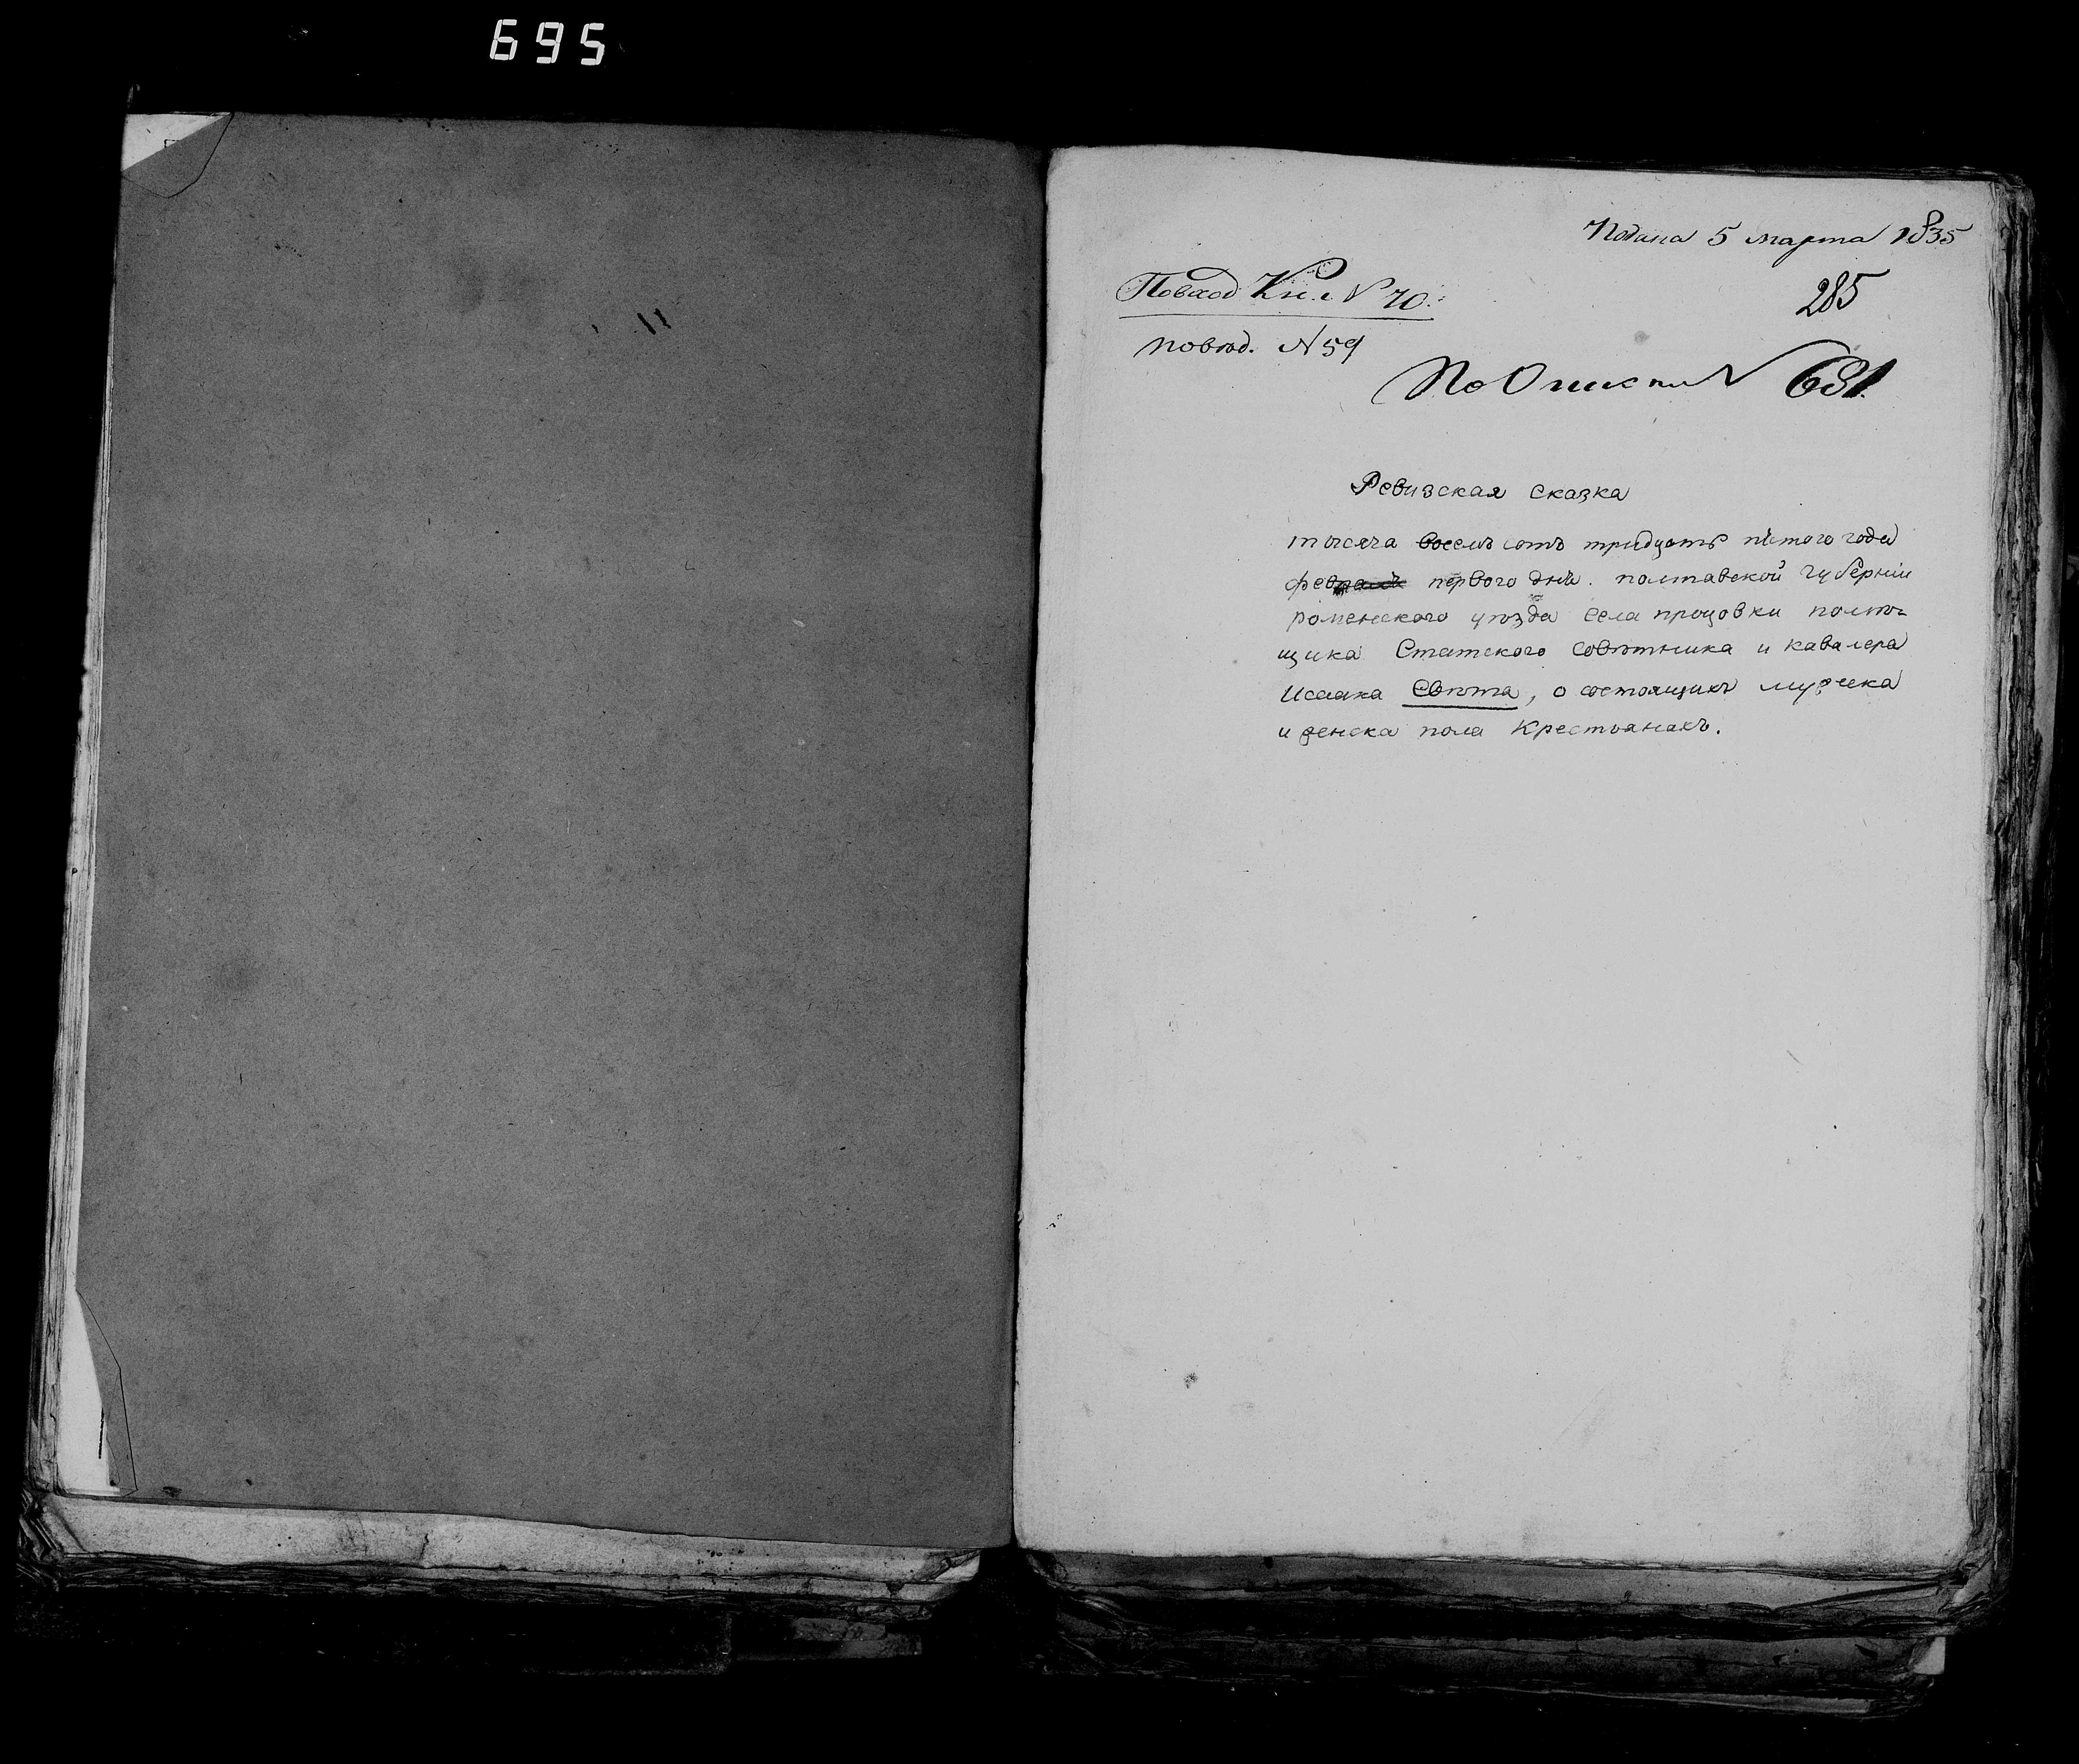 695
Подана 5 марта 1835
Повход Кн. N 70.
285
повѣд. N 59
По Описи N 631.
Ревизская сказка
тысяча восемъ сотъ тридцать пятого года
февраля первого дня. полтавской губерніи
роменского уѣзда села процовки помѣ-
щика Статского совѣтника и кавалера
Исаака Свѣта, о состоящихъ мужеска
и женска пола Крестьянахъ.